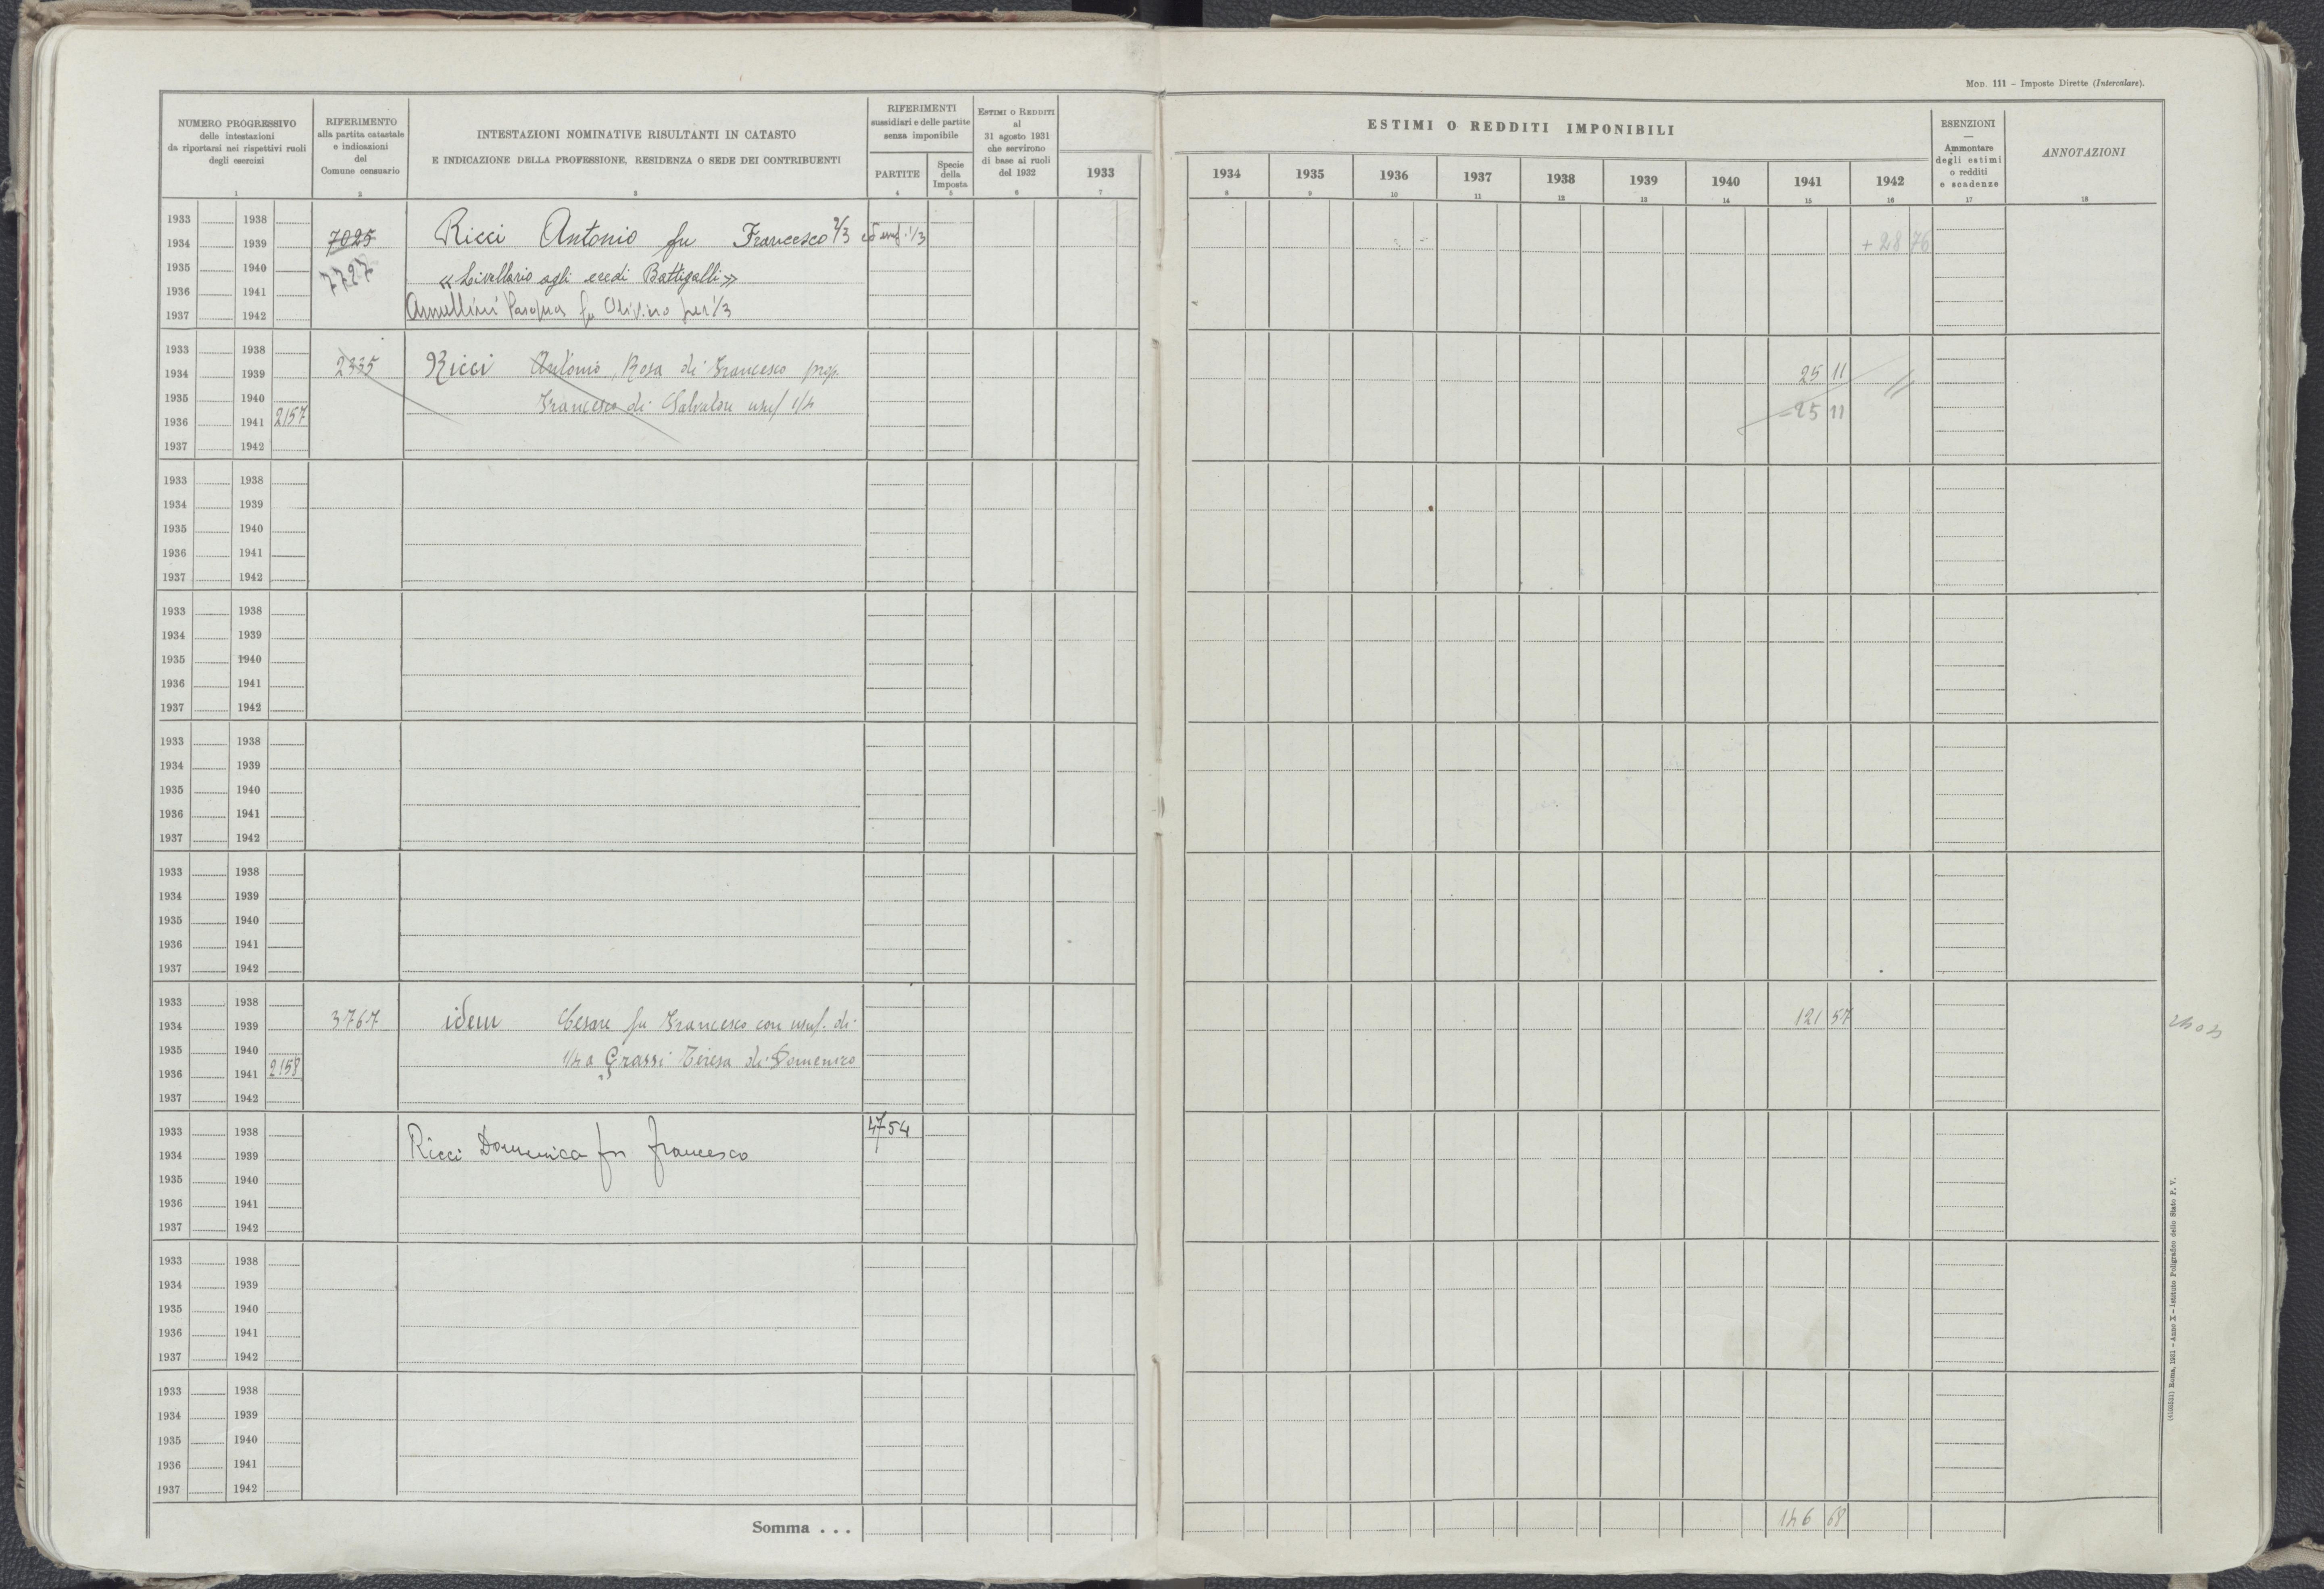 MOD. 111 – Imposte Dirette (Intercalare).
NUMERO PROGRESSIVO
delle intestazioni
da riportarsi nei rispettivi ruoli
degli esercizi
1
RIFERIMENTO
alla partita catastale
e indicazioni
del
Comune censuario
2
INTESTAZIONI NOMINATIVE RISULTANTI IN CATASTO
E INDICAZIONE DELLA PROFESSIONE, RESIDENZA O SEDE DEI CONTRIBUENTI
3
RIFERIMENTI
sussidiari e delle partite
senza imponibile
PARTITE
4
Specie
della
Imposta
5
ESTIMI O REDDITI
al
31 agosto 1931
che servirono
di base ai ruoli
del 1932
6
1933
7
ESTIMI O REDDITI IMPONIBILI
1934 1935 1936 1937 1938 1939 1940 1941 1942
8 9 10 11 12 13 14 15 16
ESENZIONI
—
Ammontare
degli estimi
o redditi
e scadenze
17
ANNOTAZIONI
18
1933 1938
1934 1939 7025 Ricci Antonio fu Francesco 2/3 usuf. 1/3 + 28 76
1935 1940 7727 « Livellario agli eredi Battigalli »
1936 1941
1937 1942 fu Olivino per 1/3
1933 1938
1934 1939 2335 Ricci Antonio, Rosa di Francesco prop. 25 11
1935 1940 Francesco di Salvatore usuf 1/4 - 25 11
1936 1941 2157
1937 1942
1933 1938
1934 1939
1935 1940
1936 1941
1937 1942
1933 1938
1934 1939
1935 1940
1936 1941
1937 1942
1933 1938
1934 1939
1935 1940
1936 1941
1937 1942
1933 1938
1934 1939
1935 1940
1936 1941
1937 1942
1933 1938
1934 1939 3767 idem Cesare fu Francesco con usuf. di 121 57
1935 1940 1/4 a Grassi Teresa di Domenico
1936 1941 2158
1937 1942
1933 1938 4754
1934 1939 Ricci Domenica fu Francesco
1935 1940
1936 1941
1937 1942
1933 1938
1934 1939
1935 1940
1936 1941
1937 1942
1933 1938
1934 1939
1935 1940
1936 1941
1937 1942
Somma . . . 146 68
Roma, 1931 – Anno X – Istituto Poligrafico dello Stato P. V.